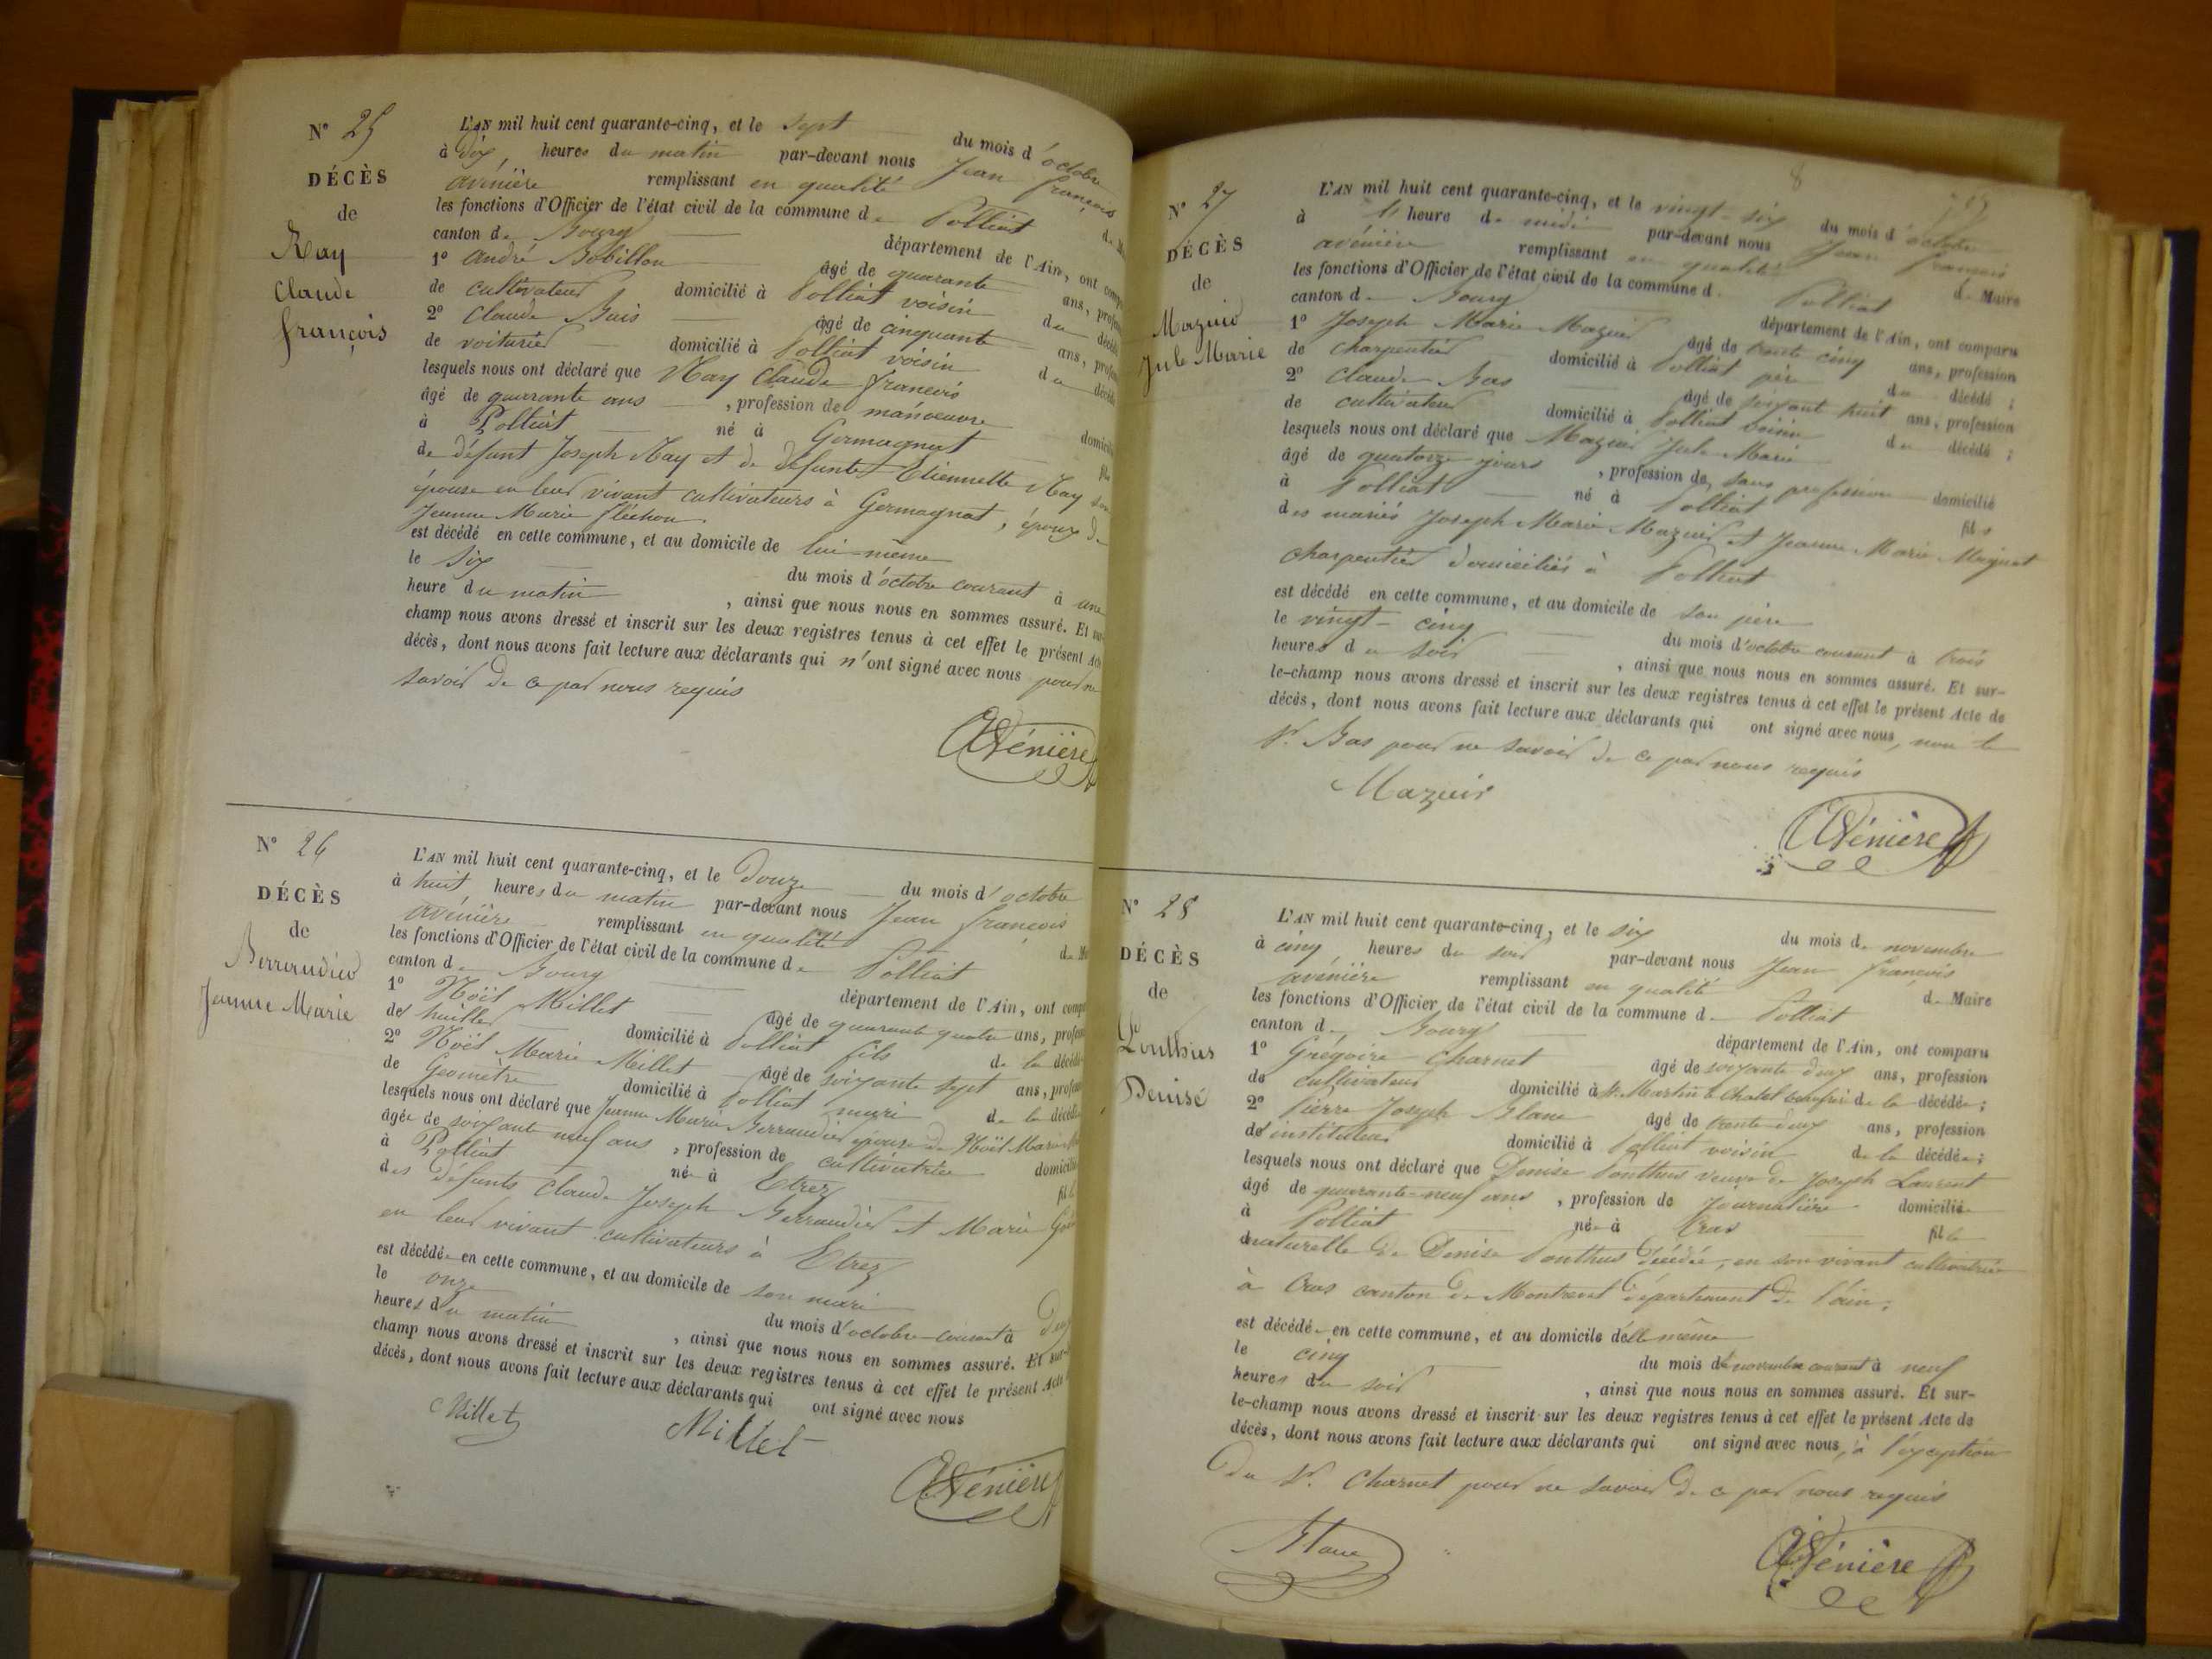 N° 25
DÉCÈS
de
Ray
Claude
françois
L'AN mil huit cent quarante-cinq, et le sept du mois d'octobre
à dix heures du matin par-devant nous Jean françois
avénière remplissant en qualité de
les fonctions d'Officier de l'état civil de la commune de Polliat
canton de Bourg département de l'Ain, ont
1° andré Bobillon âgé de quarante ans,
de cultivateur domicilié à Polliat voisin du
2° Claude Buis âgé de cinquante ans,
de voiturier domicilié à Polliat voisin du
lesquels nous ont déclaré que Ray Claude françois
âgé de quarante ans, profession de manoeuvre
à Polliat né à Germagnat
de défunt Joseph Ray et de défunte Etiennette Ray son
épouse en leur vivant cultivateurs à Germagnat, époux de
Jeanne Marie fléchon
est décédé en cette commune, et au domicile de lui-même
le six du mois d'octobre courant à une
heure du matin, ainsi que nous nous en sommes assuré. Et sur-
champ nous avons dressé et inscrit sur les deux registres tenus à cet effet le présent
décès, dont nous avons fait lecture aux déclarants qui n'ont signé avec nous pour ne
savoir de ce par nous requis
Avénière
N° 26
DÉCÈS
de
Berraudier
Jeanne Marie
L'AN mil huit cent quarante-cinq, et le douze du mois d'octobre
à huit heures du matin par-devant nous Jean françois
avénière remplissant en qualité de
les fonctions d'Officier de l'état civil de la commune de Polliat
canton de Bourg département de l'Ain, ont
1° Noël Millet âgé de quarante quatre ans,
de domicilié à Polliat fils de la
2° Noël Marie Millet âgé de soixante sept ans,
de Géomètre domicilié à Polliat mari de la
lesquels nous ont déclaré que Jeanne Marie Berraudier épouse de Noël Marie
âgée de soixante neuf ans, profession de cultivatrice
à Polliat née à Etrez
des défunts Claude Joseph Berraudier et Marie
en leur vivant cultivateurs à Etrez
est décédée en cette commune, et au domicile de son mari
le onze du mois d'octobre courant à deux
heures du matin, ainsi que nous nous en sommes assuré. Et sur-
champ nous avons dressé et inscrit sur les deux registres tenus à cet effet le présent Acte
décès, dont nous avons fait lecture aux déclarants qui ont signé avec nous
Millet Millet
Avénière
8
N° 27
DÉCÈS
de
Mazuir
Jule Marie
L'AN mil huit cent quarante-cinq, et le vingt-six du mois d'octobre
à heure de midi par-devant nous Jean françois
avénière remplissant en qualité de Maire
les fonctions d'Officier de l'état civil de la commune de Polliat
canton de Bourg département de l'Ain, ont comparu
1° Joseph Marie Mazuir âgé de trente cinq ans, profession
de charpentier domicilié à Polliat père du décédé;
2° Claude Bas âgé de soixant huit ans, profession
de cultivateur domicilié à Polliat voisin du décédé;
lesquels nous ont déclaré que Mazuir Jule Marie
âgé de quatorze jours, profession de sans profession domicilié
à Polliat né à Polliat fils
des mariés Joseph Marie Mazuir et Jeanne Marie Mognat
charpentier domiciliés à Polliat
est décédé en cette commune, et au domicile de son père
le vingt-cinq du mois d'octobre courant à trois
heures du soir, ainsi que nous nous en sommes assuré. Et sur-
le-champ nous avons dressé et inscrit sur les deux registres tenus à cet effet le présent Acte de
décès, dont nous avons fait lecture aux déclarants qui ont signé avec nous, non le
Sr. Bas pour ne savoir de ce par nous requis
Mazuir
Avénière
N° 28
DÉCÈS
de
Ponthus
Denise
L'AN mil huit cent quarante-cinq, et le six du mois de novembre
à cinq heures du soir par-devant nous Jean françois
avénière remplissant en qualité de Maire
les fonctions d'Officier de l'état civil de la commune de Polliat
canton de Bourg département de l'Ain, ont comparu
1° Grégoire Charnet âgé de soixante deux ans, profession
de cultivateur domicilié à St. Martin le Chatel beaufrère de la décédée;
2° Pierre Joseph Blanc âgé de trente deux ans, profession
d'instituteur domicilié à Polliat voisin de la décédée;
lesquels nous ont déclaré que Denise Ponthus veuve de Joseph Laurent
âgé de quarante-neuf ans, profession de Journalière domicilié
à Polliat née à Cras fille
naturelle de Denise Ponthus décédée, en son vivant cultivatrice
à Cras canton de Montrevel département de l'ain,
est décédée en cette commune, et au domicile d'elle même
le cinq du mois de novembre courant à neuf
heures du soir, ainsi que nous nous en sommes assuré. Et sur-
le-champ nous avons dressé et inscrit sur les deux registres tenus à cet effet le présent Acte de
décès, dont nous avons fait lecture aux déclarants qui ont signé avec nous, à l'exception
du Sr. Charnet pour ne savoir de ce par nous requis
Blanc
Avénière